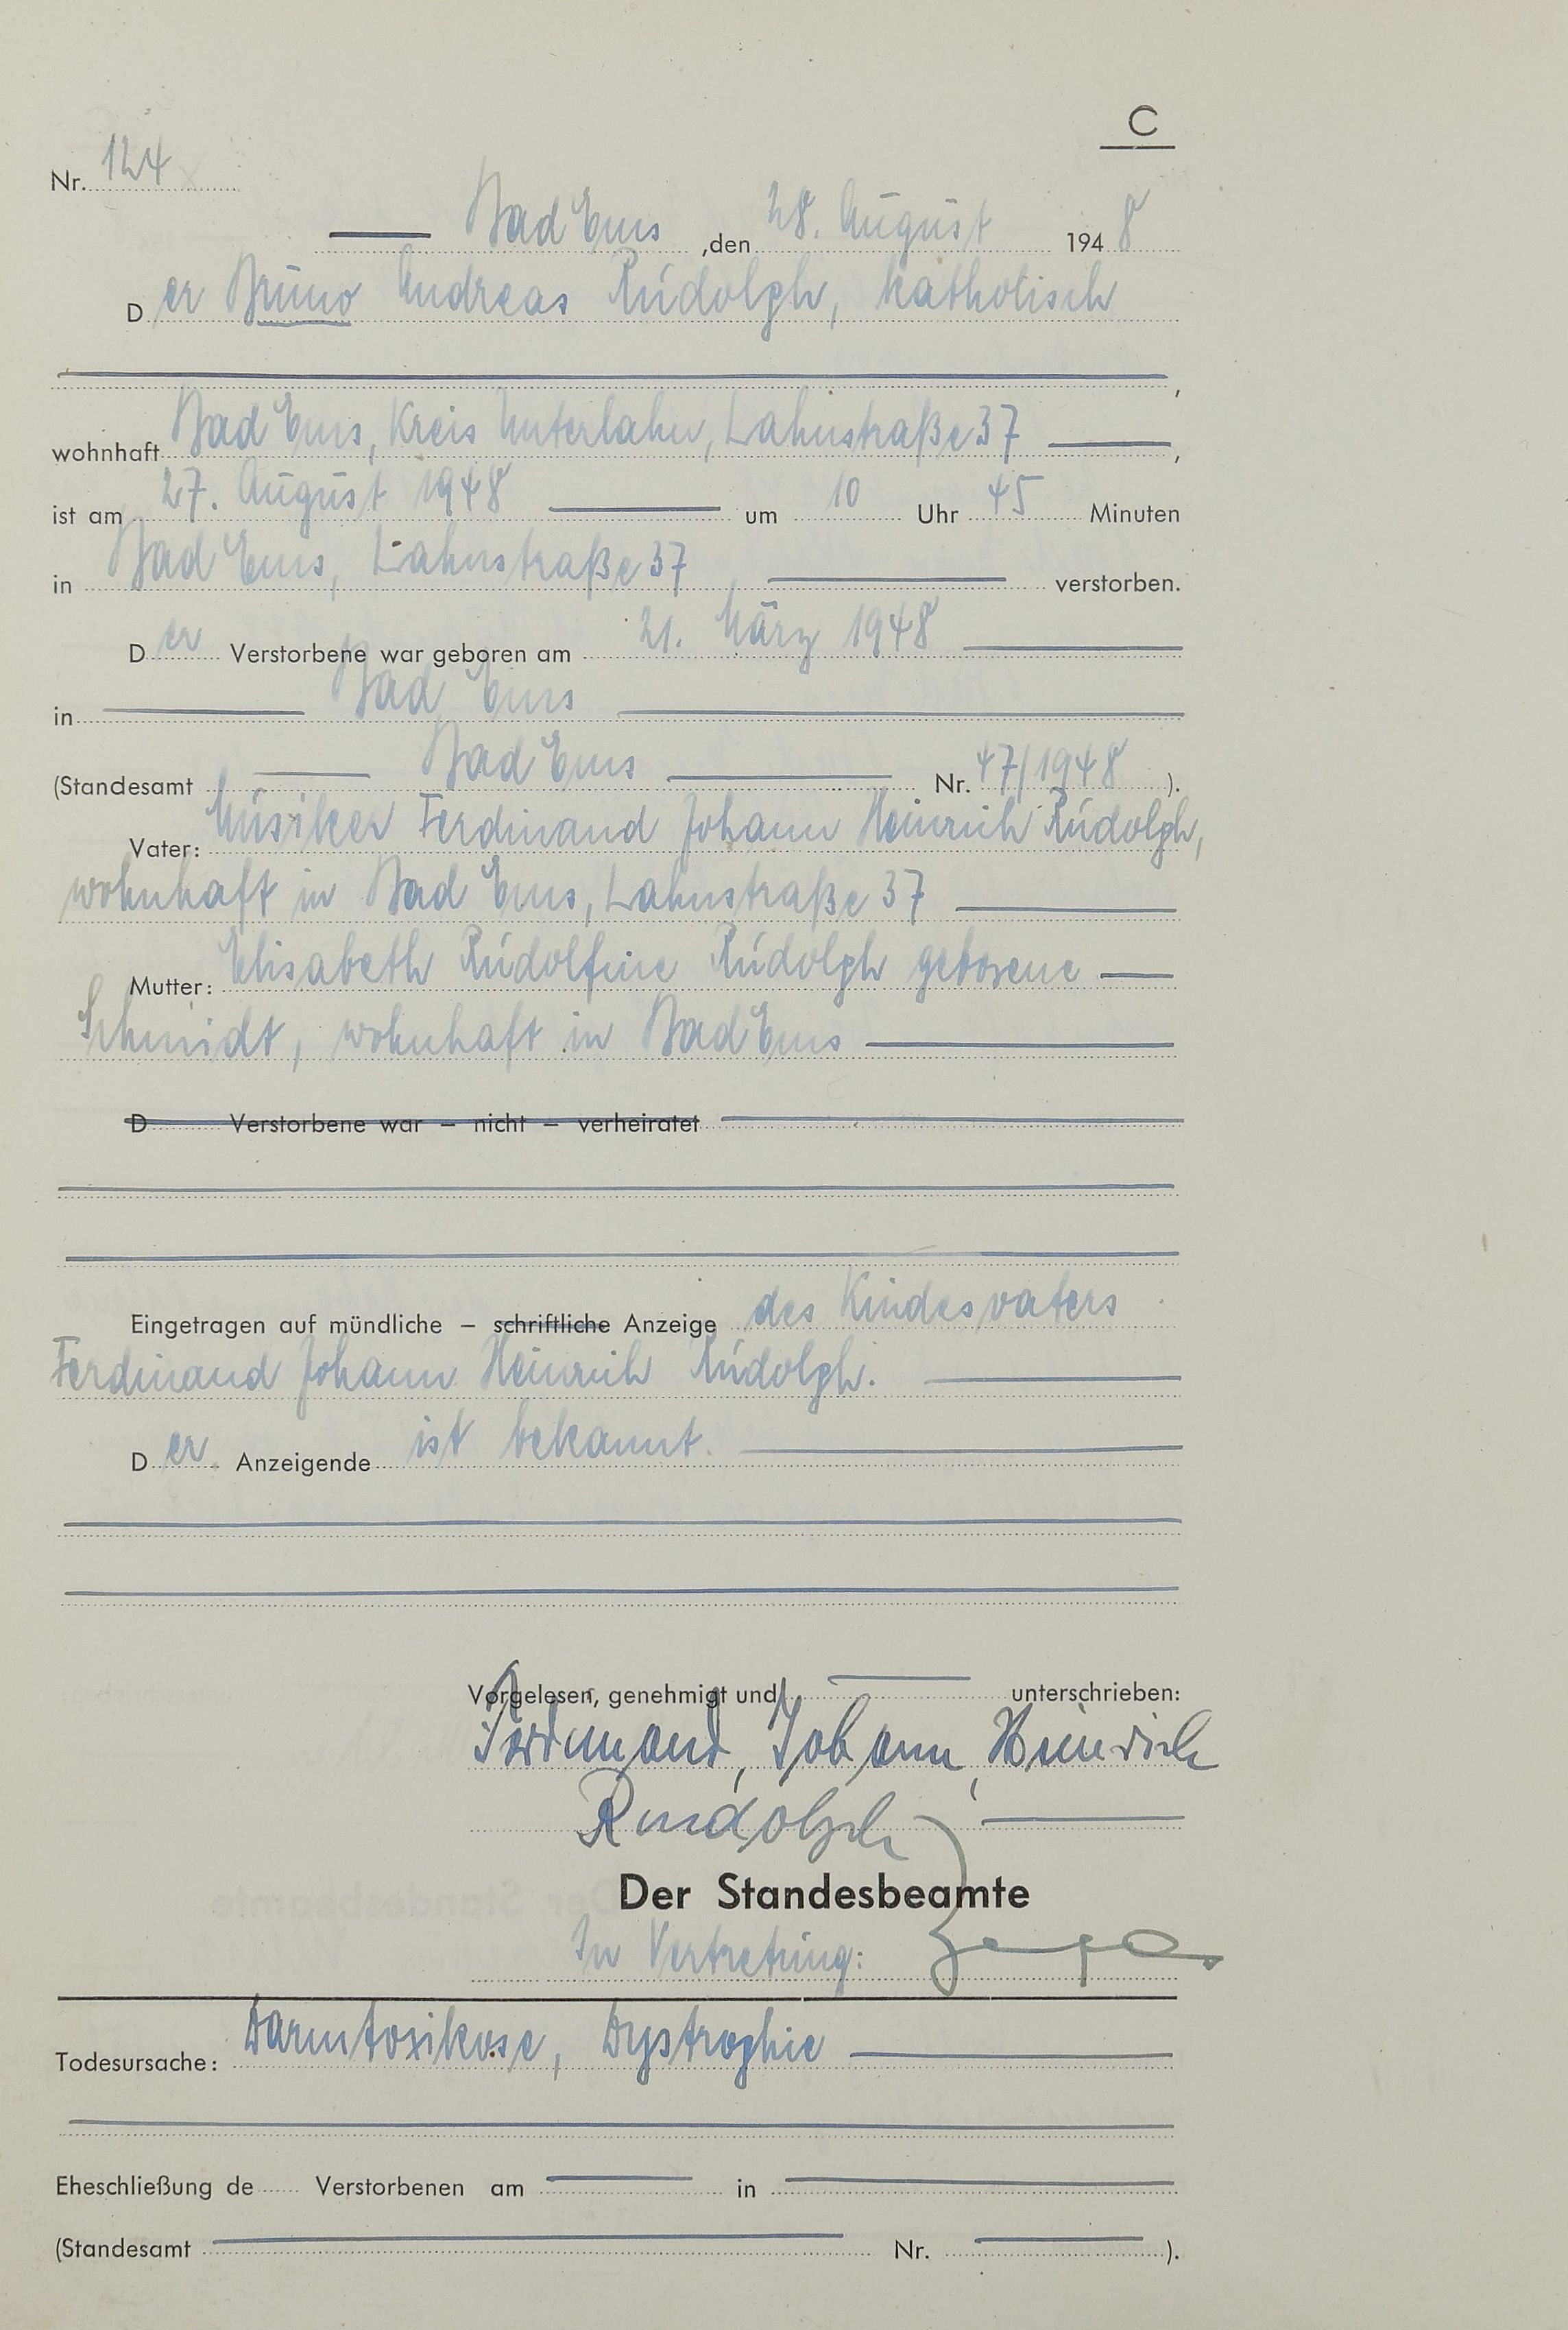 C
Nr. 124
Bad Ems, den 28. August 1948
Der Bruno Andreas Rudolph, katholisch
,
wohnhaft Bad Ems, Kreis Unterlahn, Lahnstraße 37 ,
ist am 27. August 1948 um 10 Uhr 45 Minuten
in Bad Ems, Lahnstraße 37 verstorben.
Der Verstorbene war geboren am 21. März 1948
in Bad Ems
(Standesamt Bad Ems Nr. 47/1948 ).
Vater: Musiker Ferdinand Johann Heinrich Rudolph,
wohnhaft in Bad Ems, Lahnstraße 37
Mutter: Elisabeth Rudolfine Rudolph geborene
Schmidt, wohnhaft in Bad Ems
D Verstorbene war – nicht – verheiratet
Eingetragen auf mündliche – schriftliche Anzeige des Kindesvaters
Ferdinand Johann Heinrich Rudolph.
Der Anzeigende ist bekannt.
Vorgelesen, genehmigt und unterschrieben:
Ferdinand, Johann, Heinrich
Rudolph
Der Standesbeamte
In Vertretung:
Todesursache: Darmtoxikose, Dystrophie
Eheschließung de Verstorbenen am in
(Standesamt Nr. ).